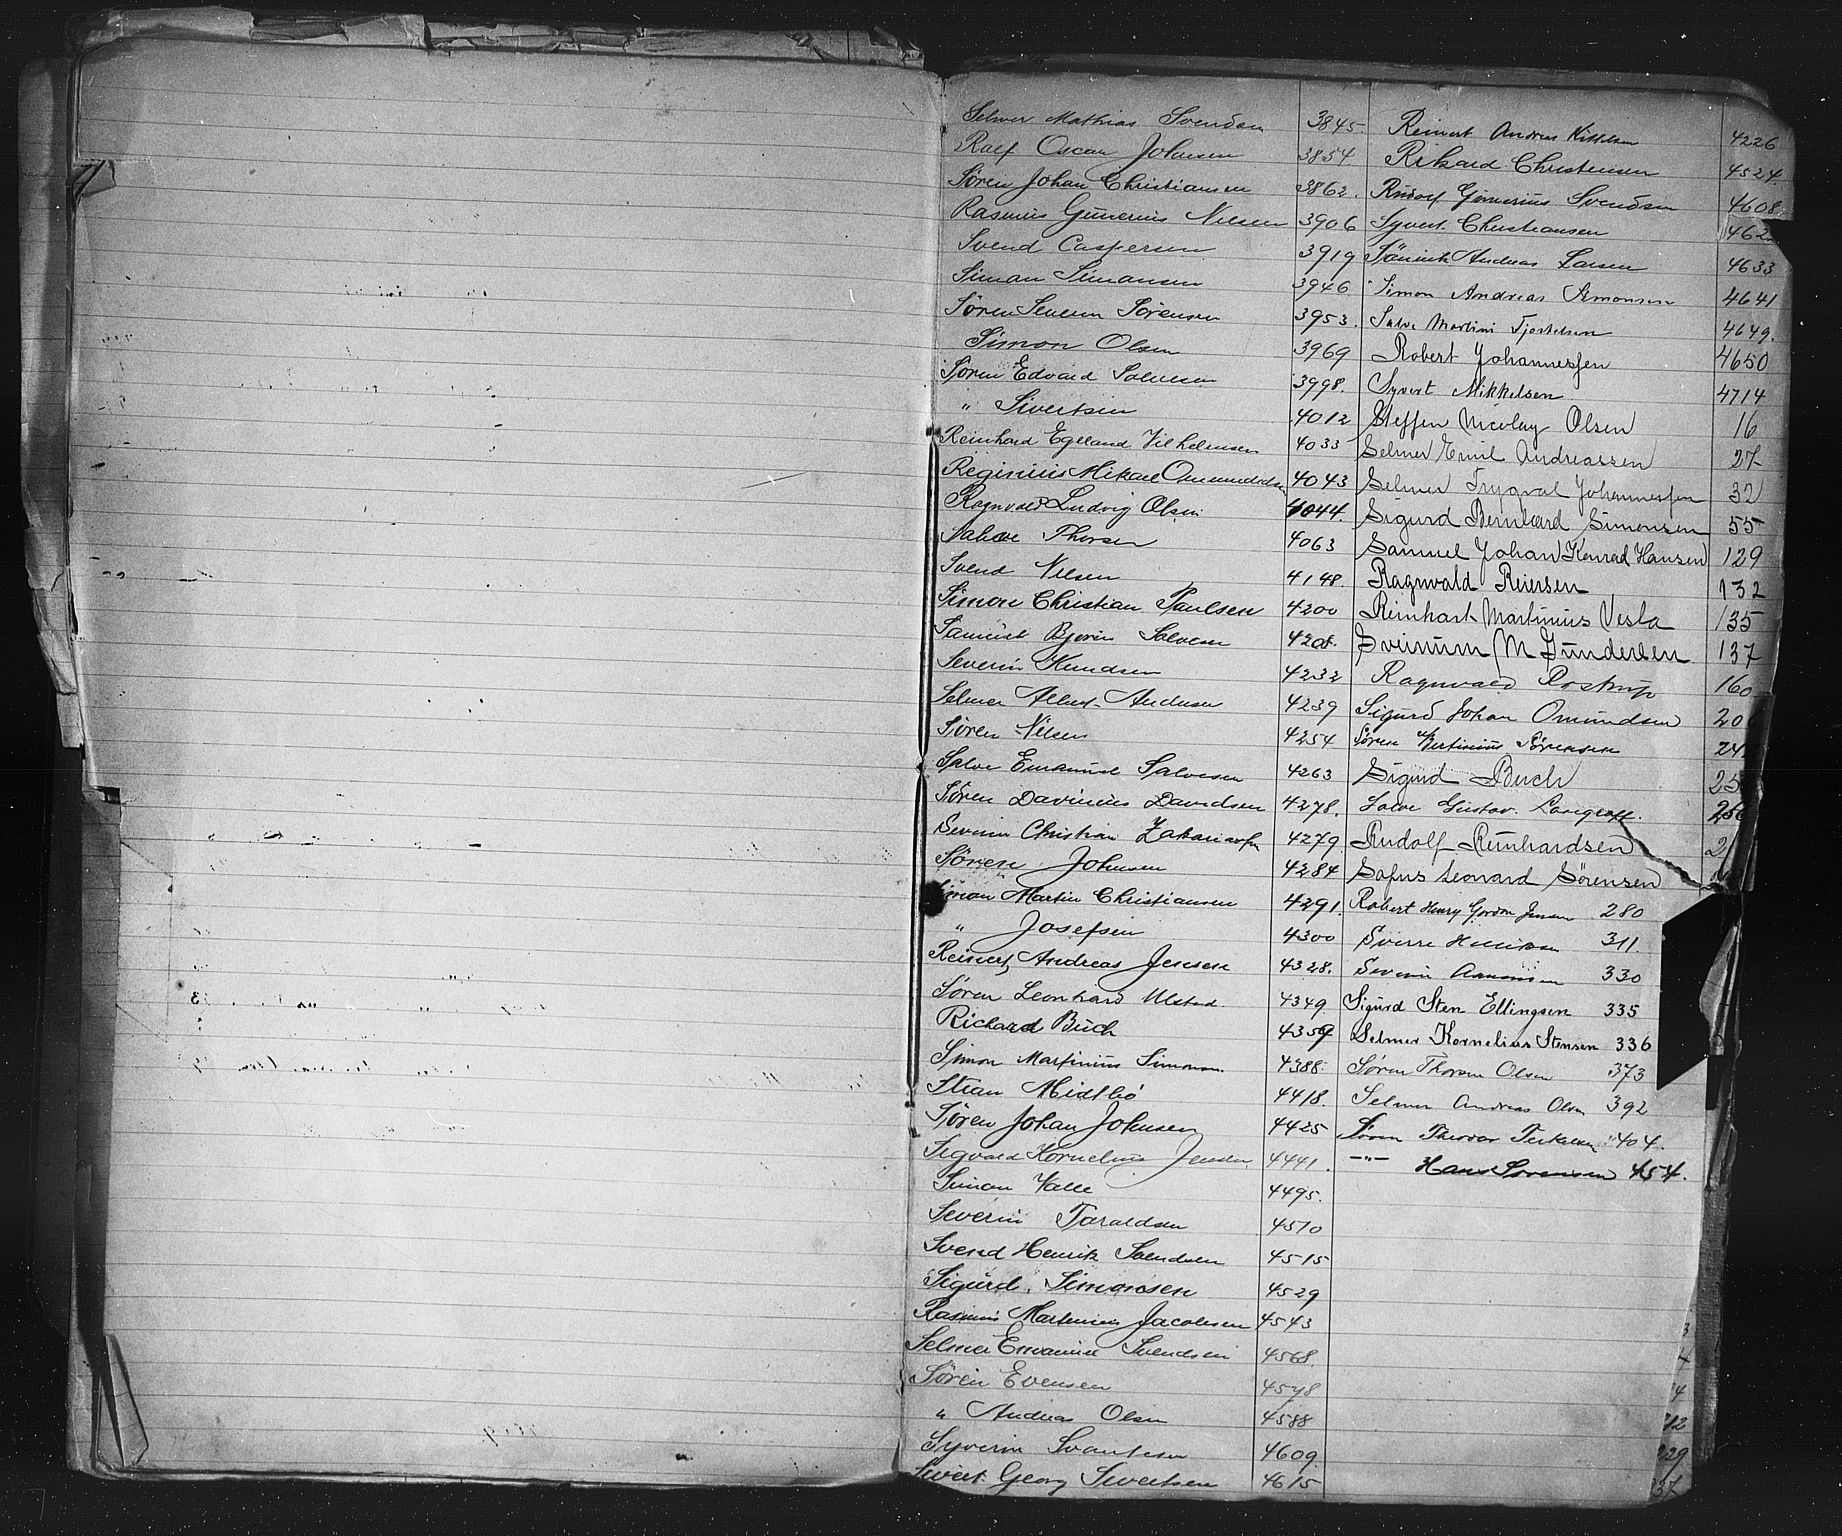 Selmer Mathias Svendsen 3845
Ralf Oscar Johnsen 3854
Søren Johan Christiansen 3862.
Rasmus Gunerius Nilsen 3906
Svend Caspersen 3919
Simon Simonsen 3946
Søren Severin Sørensen 3953.
Simon Olsen 3969
Søren Edvard Salvesen 3998.
" Sivertsen 4012
Reinhard Egeland Vilhelmsen 4033
Reginius Mikael Omundsen 4043
Ragnvald Ludvig Olsen 4044.
Thorsen 4063
Svend Nilsen 4148.
Simon Christian Paulsen 4200
Samuel Bjorn Salvesen 4208.
Severin Knudsen 4232
Selmer Albert Andersen 4239
Søren Nilsen 4254
Salve Emanuel Salvesen 4263
Søren Davinius Davidsen 4278.
Severin Christian Zakariasen 4279
Søren Johnsen 4284
Simon Martin Christiansen 4291.
" Josefsen 4300
Reinert Andreas Jensen 4328.
Søren Leonhard Ulstad 4349
Richard Buch 4359
Simon Martinius Simonsen 4388.
Stian Midtbø 4418.
Søren Johan Johnsen 4425
Sigvald Kornelius Jensen 4441.
Simon Valle 4495.
Severin Taraldsen 4510
Svend Henrik Svendsen 4515
Sigurd Simonsen 4529
Rasmus Martinius Jacobsen 4543
Selmer Emanuel Svendsen 4568.
Søren Evensen 4578
" Andreas Olsen 4588
Syverin Svantesen 4609
Sivert Georg Sivertsen 4615
Reinert Andreas Kittelsen 4226
Rikard Christensen 4524.
Rudolf Gunerius Svendsen 4608.
Syvert Christiansen 462
Andreas Larsen 4633
Simon Andreas Simonsen 4641
Salve Martini Tjostelsen 4649.
Robert Johannessen 4650
Syvert Mikkelsen 4714
Steffen Nicolay Olsen 16
Selmer Emil Andreassen 27
Selmer Trygval Johannessen 32
Sigurd Bernhard Simonsen 55
Samuel Johan Konrad Hansen 129
Ragnvald Reiersen 132
Reinhart Martinius Vesla 135
Sveinum M Gundersen 137
Ragnvald Rostrup 160
Sigurd Johan Omundsen 20
Søren Bertinius Sørensen 24
Sigurd Buch 25
Salve Gustav 256
Rudolf Reinhardsen 2
Sofus Leonard Sørensen
Robert Henry Gordon Jensen 280
Sverre Henriksen 311
Severin 330
Sigurd Sten Ellingsen 335
Selmer Kornelius Stensen 336
Søren Thorsen Olsen 373
Selmer Andreas Olsen 392
Søren Theodor Terkelsen 404.
—"— Hans Sørensen 454.